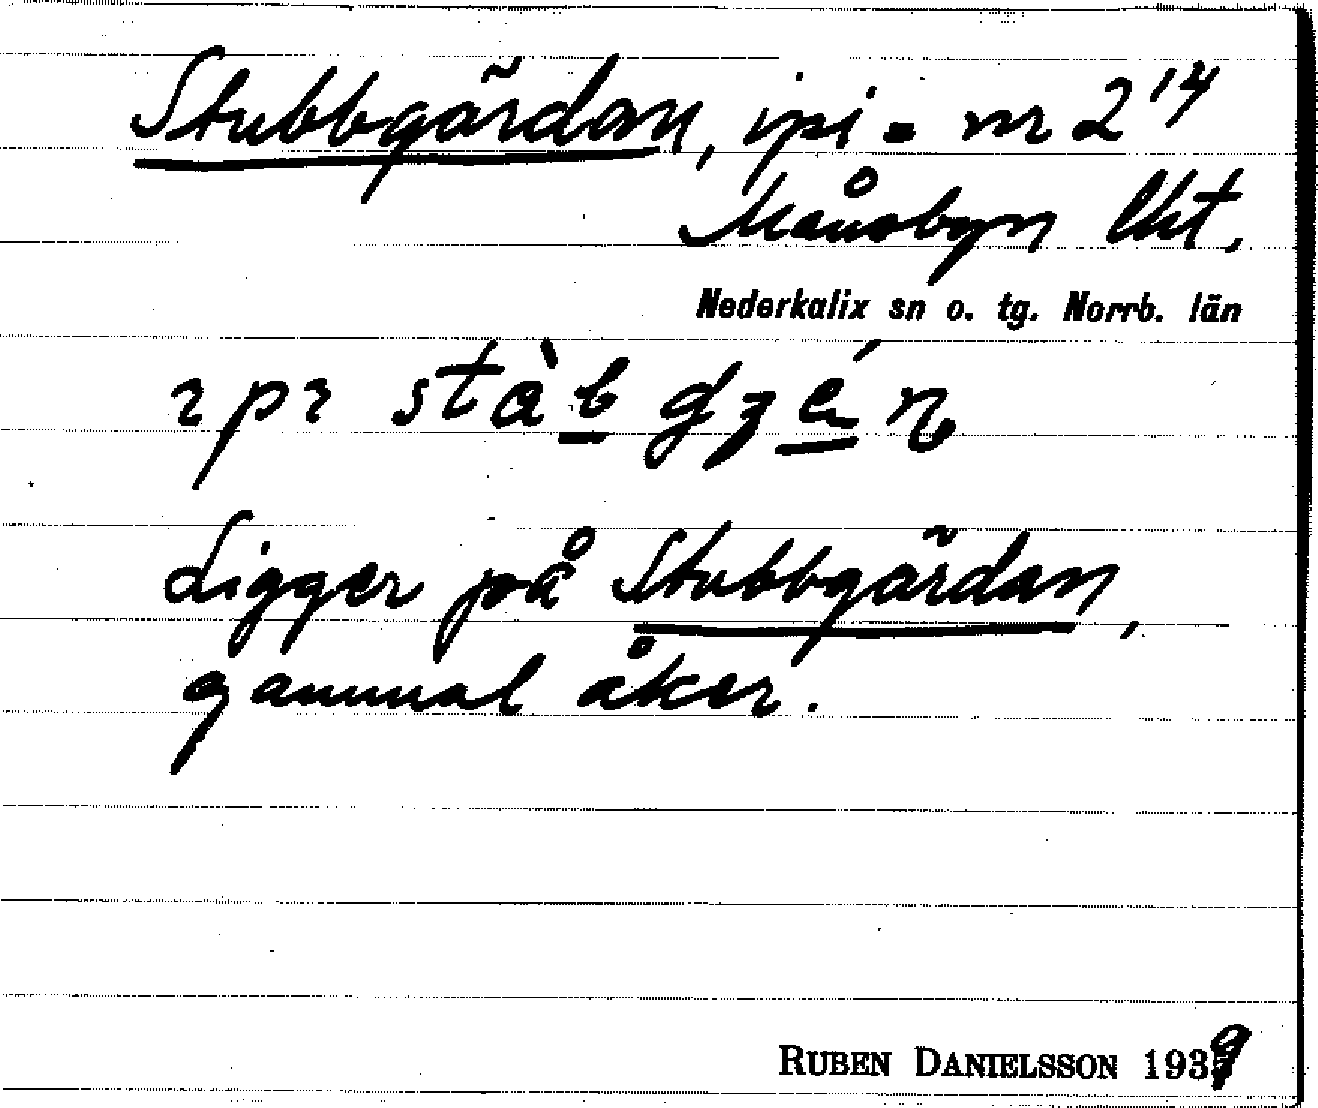 Stubbgärdan, ipi = nr 2¹⁴
Månsbyn Ekt.
Nederkalix sn o. tg. Norrb. län
Ligger på Stubbgärdan,
gammal åker.
RUBEN DANIELSSON 1939